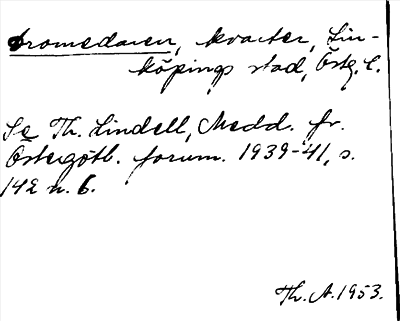 Dromedaren, kvarter, Lin-
köpings stad, Östg. l.
Se Th. Lindell, Medd. fr.
Östergötl. fornm. 1939-41, s.
142 n. 6.
Th. A. 1953.